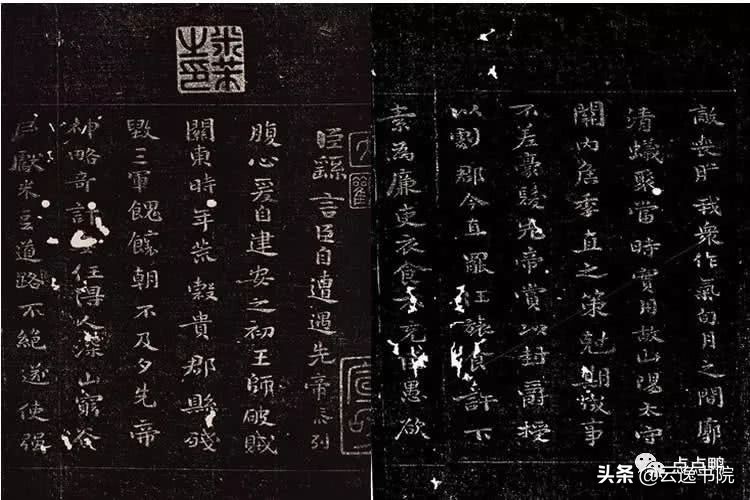 米芾之印
臣繇言臣自遭遇先帝忝列
腹心爰自建安之初王師破賊
關東時年荒穀貴郡縣殘
毀三軍餽饟朝不及夕先帝
神略奇計任得人深山窮谷
民獻米豆道路不絕遂使強
敵喪膽我眾作氣旬月之間廓
清蟻聚當時實用故山陽太守
關內侯季直之策剋期成事
不差豪髮先帝賞以封爵授
以劇郡今直罷任旅食許下
素為廉吏衣食不充臣愚欲
点点鸭
头条 @云逸书院